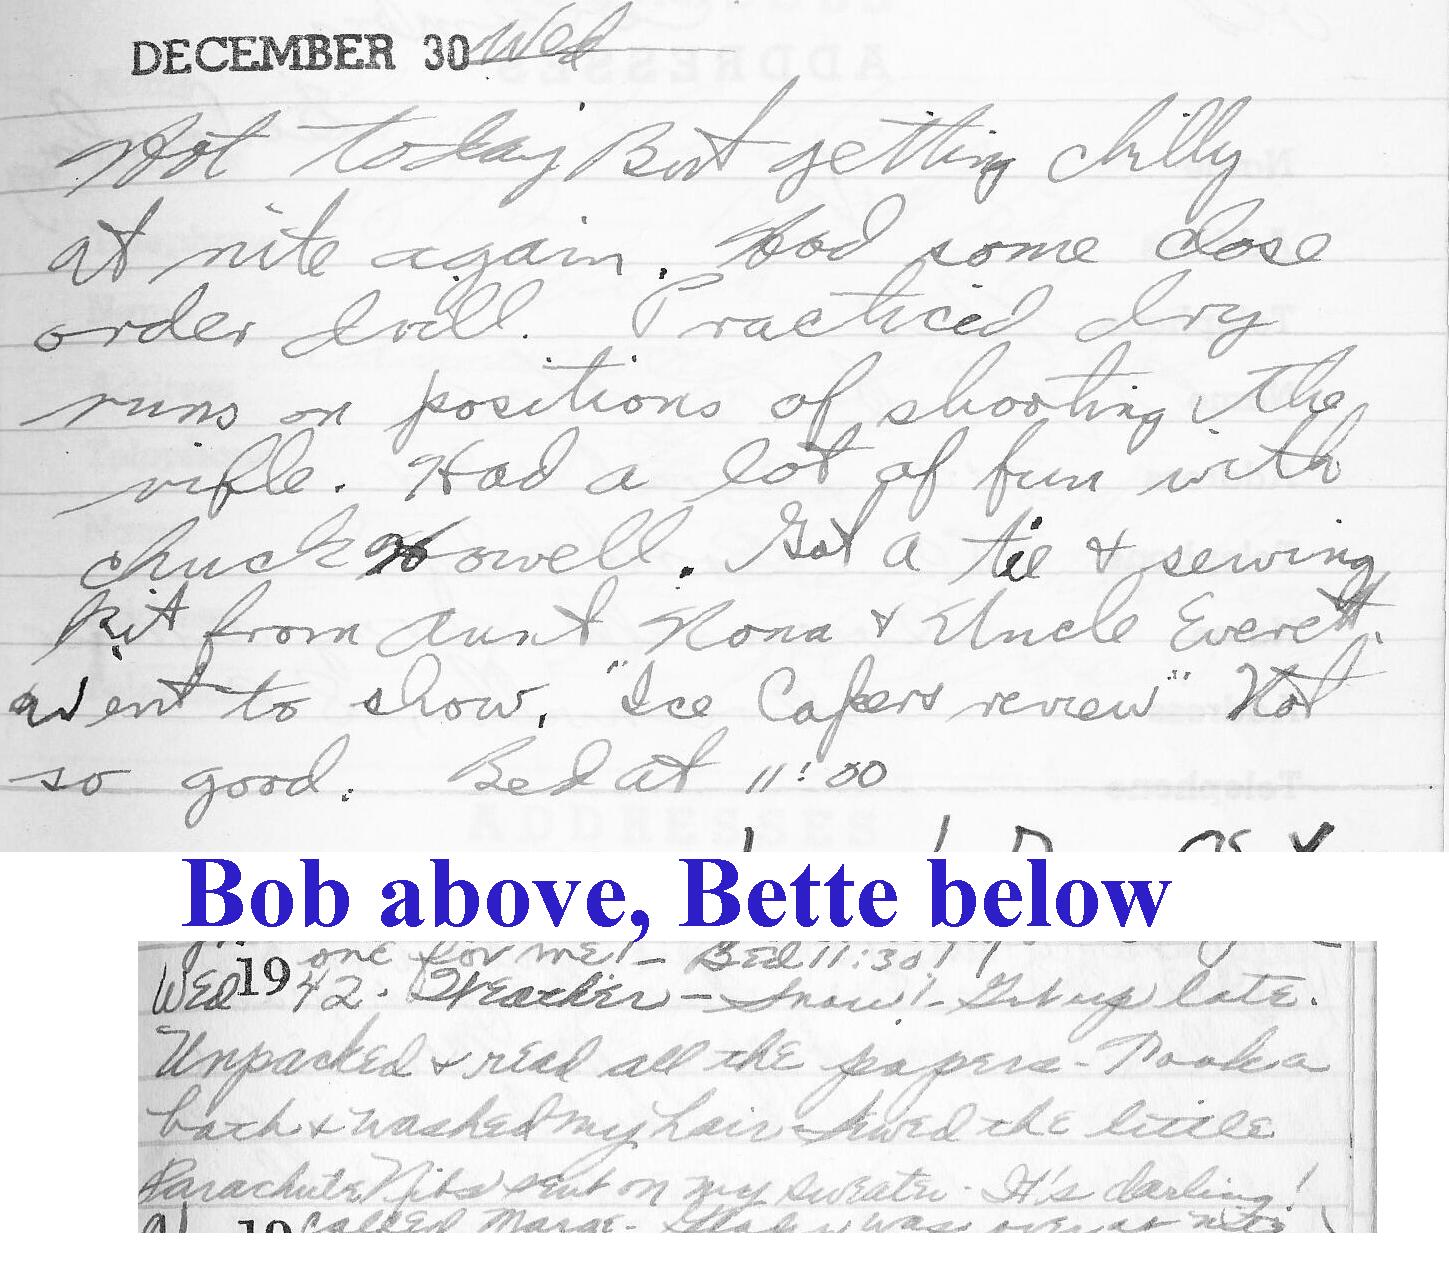 DECEMBER 30 Wed
Hot today But getting chilly
at nite again. Had some close
order drill. Practiced dry
runs on positions of shooting the
rifle. Had a lot of fun with
chuck Howell. Got a tie & sewing
kit from Aunt Nona & Uncle Everett.
went to show, "Ice Capers review" Not
so good. Bed at 11:00
Bob above, Bette below
one for me! - Bed 11:30!
Wed 1942. Weather - Snow! - Got up late.
Unpacked & read all the papers - Took a
bath & washed my hair - Sewed the little
Parachute Nibs sent on my sweater - It's darling!
19 Called Marge - was over at nite